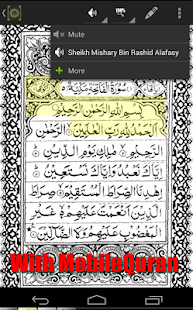 100%
Mute
Sheikh Mishary Bin Rashid Alafasy
+ More
سُورَةُ الْفَاتِحَةِ
بِسْمِ اللَّهِ الرَّحْمَٰنِ الرَّحِيمِ
الْحَمْدُ لِلَّهِ رَبِّ الْعَالَمِينَ الرَّحْمَٰنِ
الرَّحِيمِ مَالِكِ يَوْمِ الدِّينِ
إِيَّاكَ نَعْبُدُ وَإِيَّاكَ نَسْتَعِينُ
اهْدِنَا الصِّرَاطَ الْمُسْتَقِيمَ
صِرَاطَ الَّذِينَ أَنْعَمْتَ عَلَيْهِمْ غَيْرِ
الْمَغْضُوبِ عَلَيْهِمْ وَلَا الضَّالِّينَ
With MobileQuran